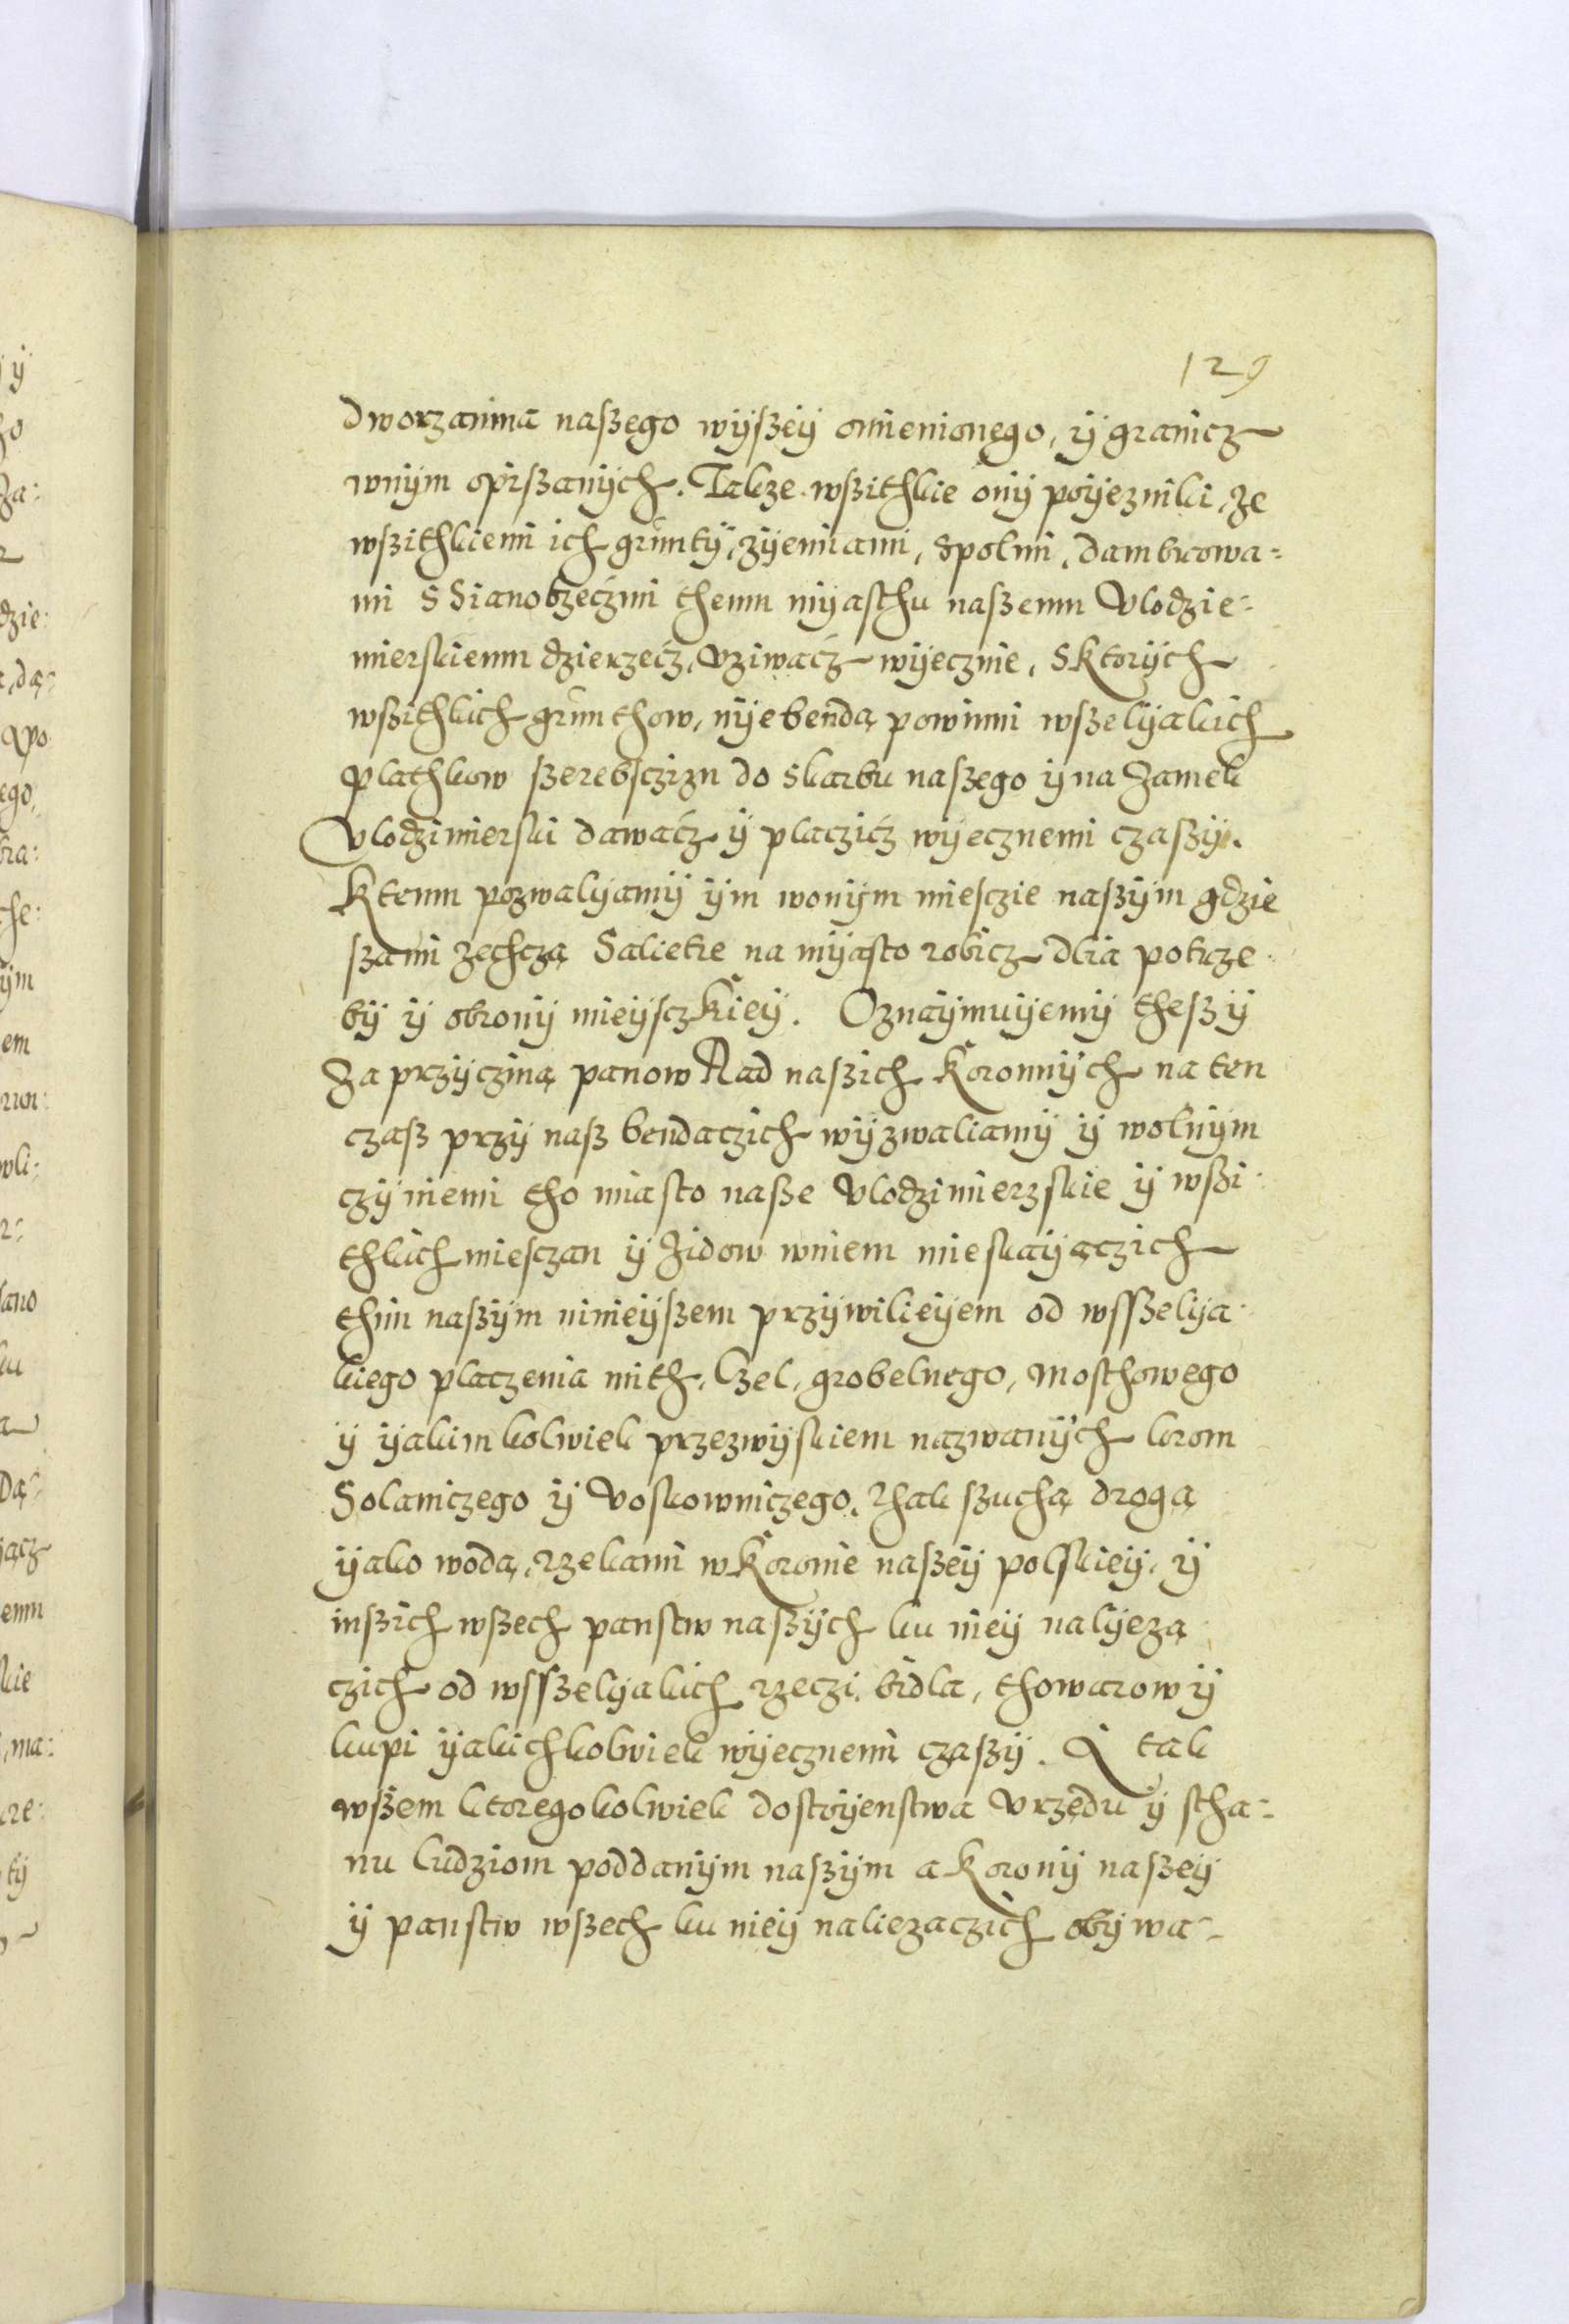 129
dworzanina naszego wÿszeÿ omienionego, ÿ granicz
wnÿm opiszanÿch. Takze wszithkie onÿ poÿeznikï, ze
wszithkiemi ich gruntÿ, zÿemiami, spolmi, dambrowa=
mi S Sianobzeczmi themu mÿasthu naszemu Vlodzie=
mierskiemu dzierzecz, Vziwacz wÿecznie, S ktorÿch
wszithkich grunthow, nÿebenda powinni wszelÿakich
plathkow szerebsczizn do skarbu naszego ÿ na Zamek
Vlodzimierski dawacz ÿ placzicz wÿecznemi czaszÿ.
Ktemu pozwalÿamÿ ÿm wonÿm miesczie naszÿm gdzie
szami zechczą Salietre na mÿasto robicz dlia potrze
bÿ ÿ obronÿ mieÿsczkieÿ. Oznaÿmuÿemÿ thesz ÿ
Za przÿcziną panow Rad naszich Koronnÿch na ten
czasz przÿ nasz bendaczich wÿzwaliamÿ ÿ wolnÿm
czÿniemi tho miasto nasze Vlodzimierzskie ÿ wszi
thkich miesczan ÿ Zidow wniem mieskaÿączich
thim naszÿm ninieÿszem przÿwilieÿem od wsszelÿa
kiego placzenia mith, Czel, grobelnego, Mosthowego
ÿ ÿakimkolwiek przezwÿskiem nazwanÿch krom
Solaniczego ÿ Voskowniczego, Thak szuchą drogą
ÿako wodą, rzekami w Koronie naszeÿ polskieÿ, ÿ
inszich wszech panstw naszÿch ku nieÿ nalÿeza
czich od wsszelÿakich rzeczi bidla, thowarow ÿ
kupi ÿakichkolviek wÿecznemi czaszÿ. A tak
wszem ktoregokolwiek dostoÿenstwa Vrzędu ÿ stha=
nu ludziom poddanÿm naszÿm a Koronÿ naszeÿ
ÿ panstw wszech ku nieÿ naliezaczich obÿwa=